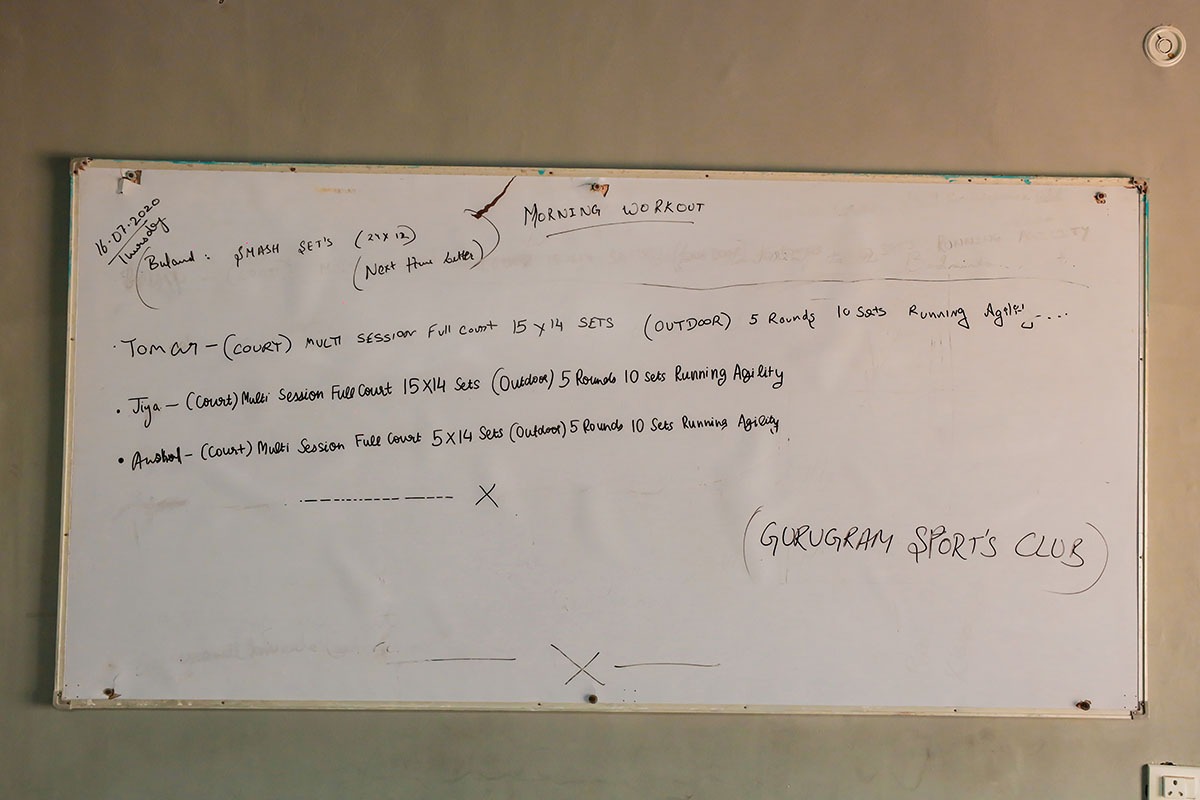 16.07.2020
Thursday
MORNING WORKOUT
(Buland : SMASH SET'S (27X12)
(Next time better)
· TOMAR - (COURT) MULTI SESSION FULL COURT 15 X 14 SETS (OUTDOOR) 5 ROUNDS 10 Sets Running Agility....
• Jiya - (Court) Multi Session Full Court 15X14 Sets (Outdoor) 5 Rounds 10 Sets Running Agility
• Anshol - (Court) Multi Session Full Court 5X14 Sets (Outdoor) 5 Rounds 10 Sets Running Agility
X
(GURUGRAM SPORT'S CLUB)
X